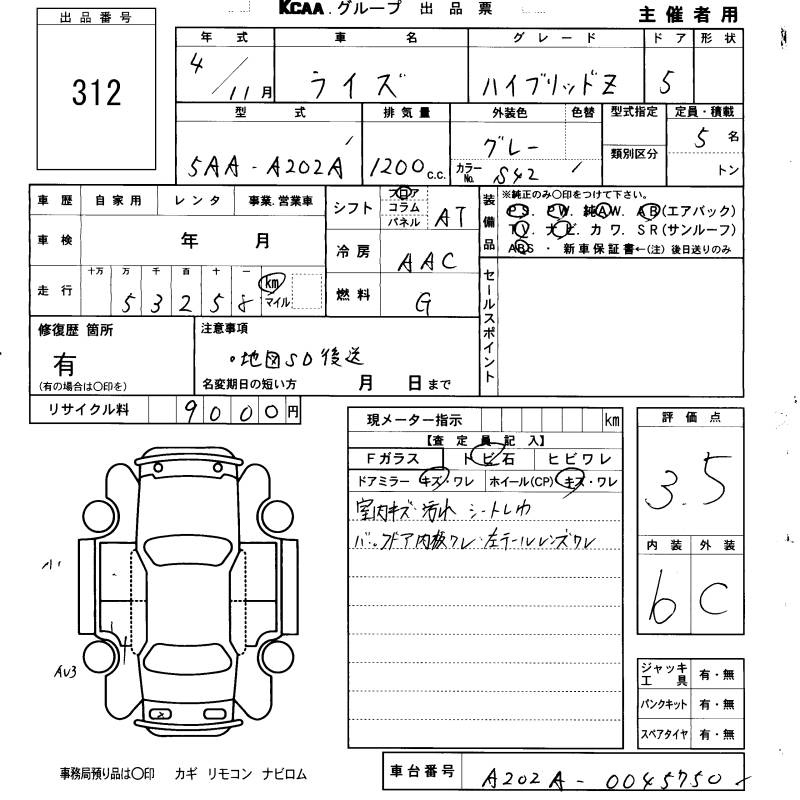 KCAA.グループ 出品票
主催者用
出品番号
312
年式 車名 グレード ドア 形状
4/11月 ライズ ハイブリッドZ 5
型式 排気量 外装色 色替 型式指定 定員・積載
5AA-A202A 1200c.c. グレー 5名
カラーNo. S42 類別区分 トン
車歴 自家用 レンタ 事業.営業車
車検 年 月
走行 十万 万 千 百 十 一 km マイル
5 3 2 5 8
シフト フロア コラム パネル AT
冷房 AAC
燃料 G
装備品
※純正のみ○印をつけて下さい。
PS. PW. 純AW. AB(エアバック)
TV. ナビ. カワ. SR(サンルーフ)
ABS ・ 新車保証書←(注)後日送りのみ
セールスポイント
修復歴 箇所
有
(有の場合は○印を)
注意事項
・地図SD後送
名変期日の短い方 月 日まで
リサイクル料 9000円
現メーター指示 km
【査定員記入】
Fガラス トビ石 ヒビワレ
ドアミラー キズ・ワレ ホイール(CP) キズ・ワレ
室内キズ・汚れ シートしわ
バックドア内板ワレ・左テールレンズワレ
評価点
3.5
内装 外装
6 C
AU3
ジャッキ工具 有・無
パンクキット 有・無
スペアタイヤ 有・無
事務局預り品は○印 カギ リモコン ナビロム
車台番号 A202A-0045750